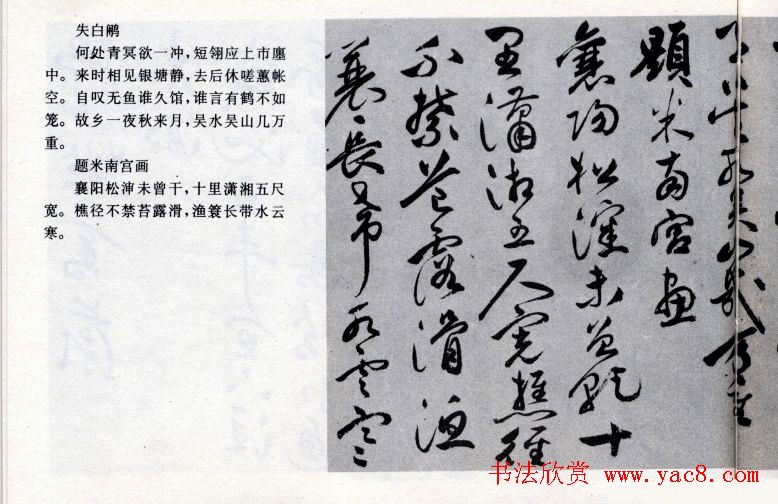 失白鹇
何处青冥欲一冲，短翎应上市廛
中。来时相见银塘静，去后休嗟蕙帐
空。自叹无鱼谁久馆，谁言有鹤不如
笼。故乡一夜秋来月，吴水吴山几万
重。
题米南宫画
襄阳松渖未曾干，十里潇湘五尺
宽。樵径不禁苔露滑，渔簑长带水云
寒。
吴山几万重
題米南宫畫
襄陽松瀋未曾乾十
里瀟湘五尺寬樵徑
不禁苔露滑漁
蓑長帶水雲寒
书法欣赏 www.yac8.com